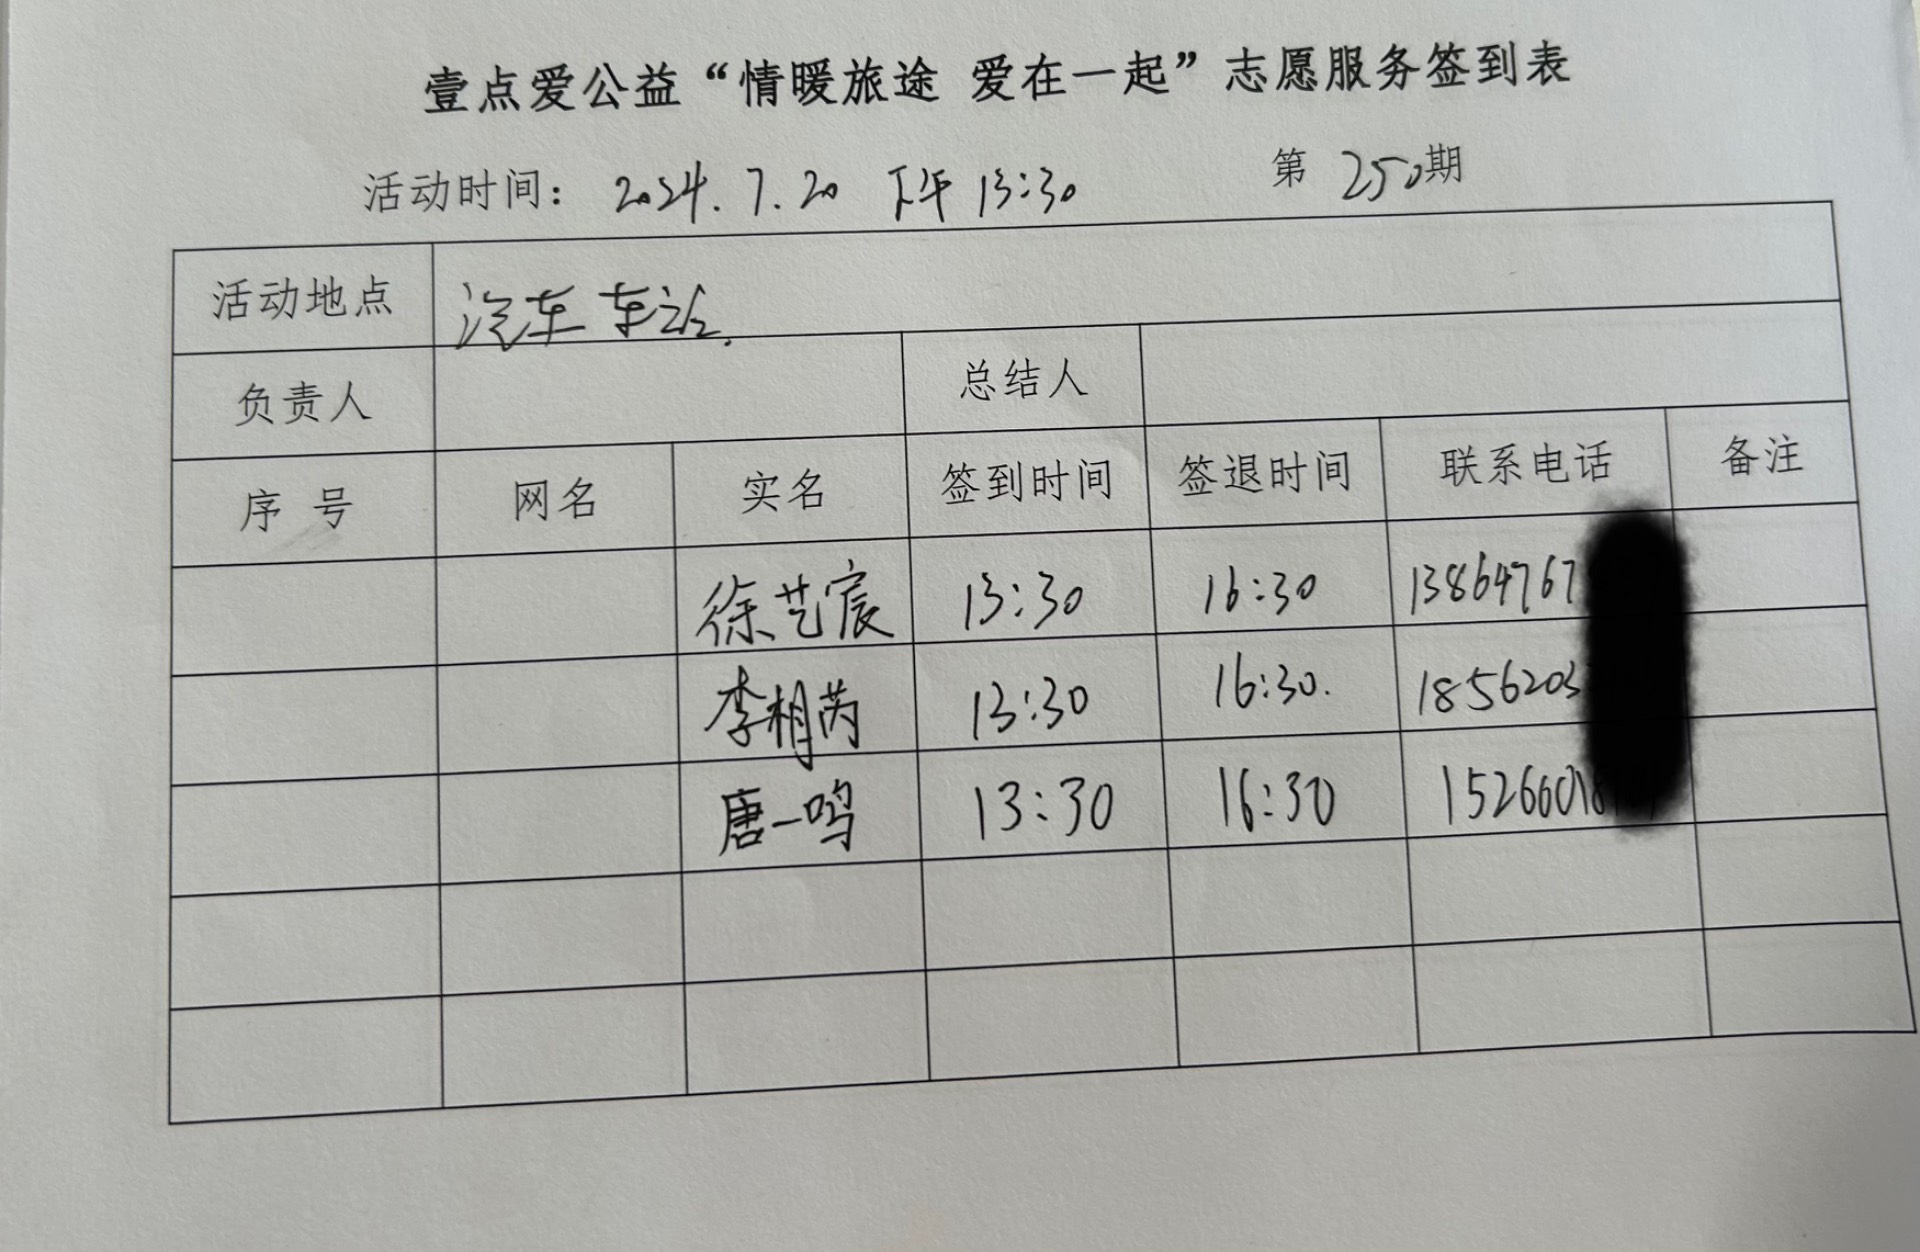 壹点爱公益“情暖旅途 爱在一起”志愿服务签到表
活动时间： 2024.7.20 下午 13:30 第 250期
活动地点 汽车车站.
负责人 总结人
序 号 网名 实名 签到时间 签退时间 联系电话 备注
徐艺宸 13:30 16:30 13864767
李相芮 13:30 16:30. 1856203
唐一鸣 13:30 16:30 15266018